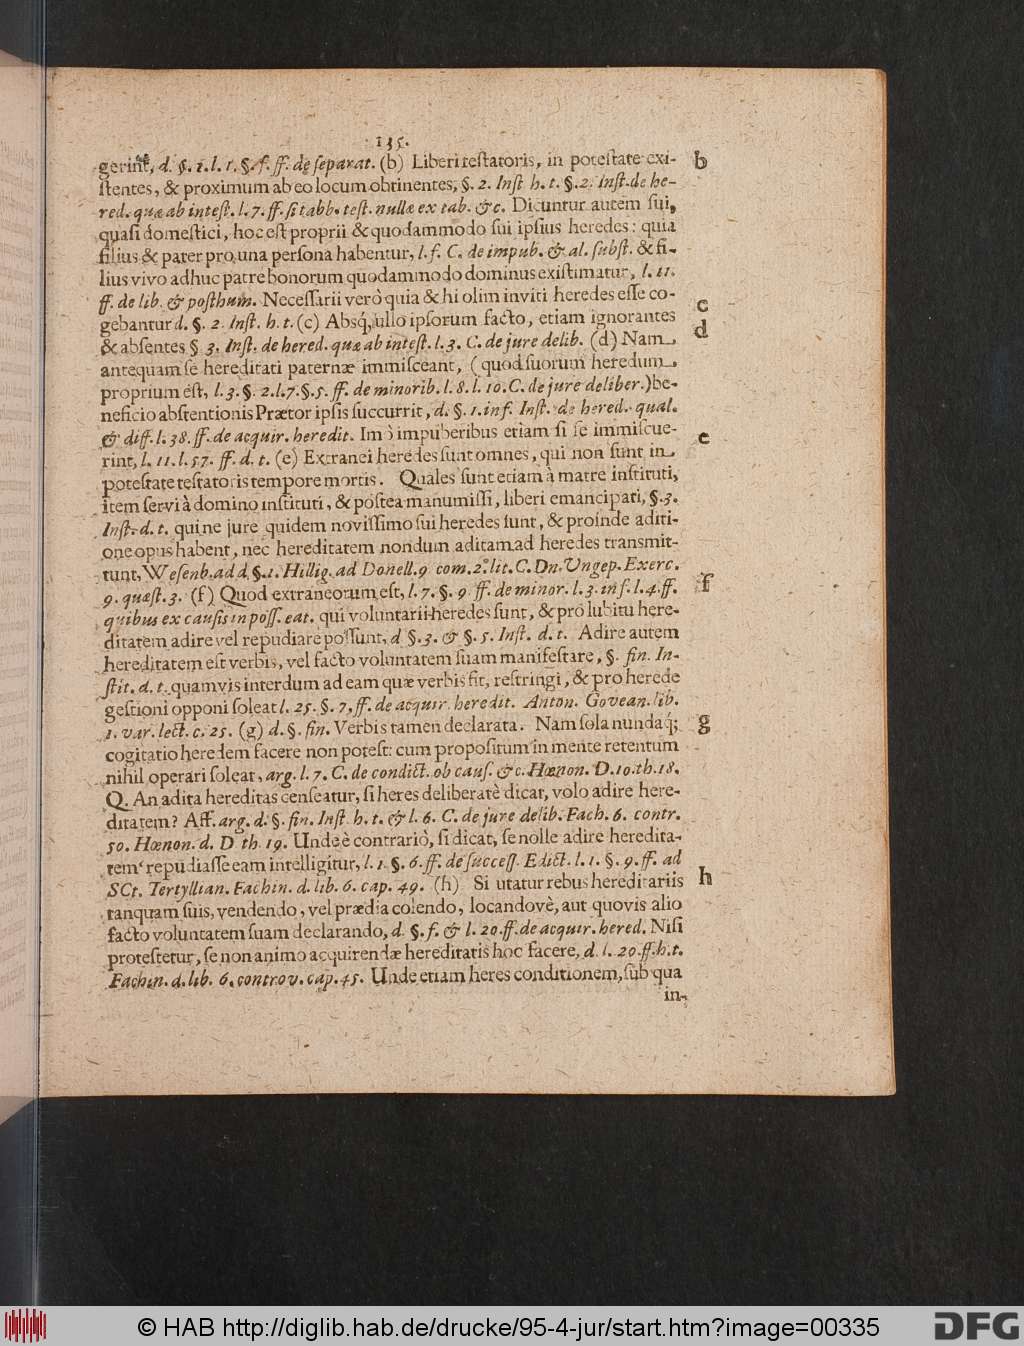 135.
gerint, d. §. 1. l. 1. §. f. ff. de separat. (b) Liberi testatoris, in potestate exi- b
stentes, & proximum ab eo locum obtinentes, §. 2. Inst h. t. §. 2. Inst. de he-
red. quæ ab intest. l. 7. ff. si tabb. test. nullæ ex tab. &c. Dicuntur autem sui,
quasi domestici, hoc est proprii & quodammodo sui ipsius heredes: quia
filius & pater pro una persona habentur, l. f. C. de impub. & al. subst. & fi-
lius vivo adhuc patre bonorum quodammodo dominus existimatur, l. 11.
ff. de lib. & posthum. Necessarii verò quia & hi olim inviti heredes esse co-
gebantur d. §. 2. Inst. h. t. (c) Absq́, ullo ipsorum facto, etiam ignorantes c
& absentes § 3. Inst. de hered. quæ ab intest. l. 3. C. de jure delib. (d) Nam d
antequam se hereditati paternæ immisceant, (quod suorum heredum
proprium est, l. 3. §. 2. l. 7. §. 5. ff. de minorib. l. 8. l. 10. C. de jure deliber.) be-
neficio abstentionis Prætor ipsis succurrit, d. §. 1. inf. Inst. de hered. qual.
& diff. l. 38. ff. de acquir. heredit. Imò impuberibus etiam si se immiscue-
rint, l. 11. l. 57. ff. d. t. (e) Extranei heredes sunt omnes, qui non sunt in e
potestate testatoris tempore mortis. Quales sunt etiam à matre instituti,
item servi à domino instituti, & postea manumissi, liberi emancipati, §. 3.
Inst. d. t. qui ne jure quidem novissimo sui heredes sunt, & proinde aditi-
one opus habent, nec hereditatem nondum aditam ad heredes transmit-
tunt, Wesenb. ad d. §. 1. Hillig. ad Donell. 9 com. 2. lit. C. Dn. Ungep. Exerc.
9. quæst. 3. (f) Quod extraneorum est, l. 7. §. 9 ff. de minor. l. 3. inf. l. 4. ff. f
quibus ex causis in poss. eat. qui voluntarii heredes sunt, & pro lubitu here-
ditatem adire vel repudiare possunt, d §. 3. & §. 5. Inst. d. t. Adire autem
hereditatem est verbis, vel facto voluntatem suam manifestare, §. fin. In-
stit. d. t. quamvis interdum ad eam quæ verbis fit, restringi, & pro herede
gestioni opponi soleat l. 25. §. 7. ff. de acquir. heredit. Anton. Govean. lib.
1. var. lect. c. 25. (g) d. §. fin. Verbis tamen declarata. Nam sola nundaq́; g
cogitatio heredem facere non potest: cum propositum in mente retentum
nihil operari soleat, arg. l. 7. C. de condict. ob caus. &c. Hœnon. D. 10. th. 18.
Q. An adita hereditas censeatur, si heres deliberatè dicat, volo adire here-
ditatem? Aff. arg. d. §. fin. Inst. h. t. & l. 6. C. de jure delib. Fach. 6. contr.
50. Hœnon. d. D th. 19. Unde è contrariò, si dicat, se nolle adire heredita-
tem repudiasse eam intelligitur, l. 1. §. 6. ff. de success. Edict. l. 1. §. 9. ff. ad
SCt. Tertyllian. Fachin. d. lib. 6. cap. 49. (h) Si utatur rebus hereditariis h
tanquam suis, vendendo, vel prædia colendo, locandovè, aut quovis alio
facto voluntatem suam declarando, d. §. f. & l. 20. ff. de acquir. hered. Nisi
protestetur, se non animo acquirendæ hereditatis hoc facere, d. l. 20. ff. h. t.
Fachin. d. lib. 6. controv. cap. 45. Unde etiam heres conditionem, sub qua
in-
© HAB http://diglib.hab.de/drucke/95-4-jur/start.htm?image=00335
DFG